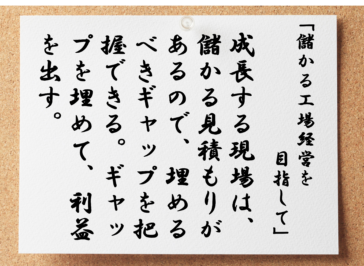 「儲かる工場経営を
目指して」
成長する現場は、
儲かる見積もりが
あるので、埋める
べきギャップを把
握できる。ギャッ
プを埋めて、利益
を出す。